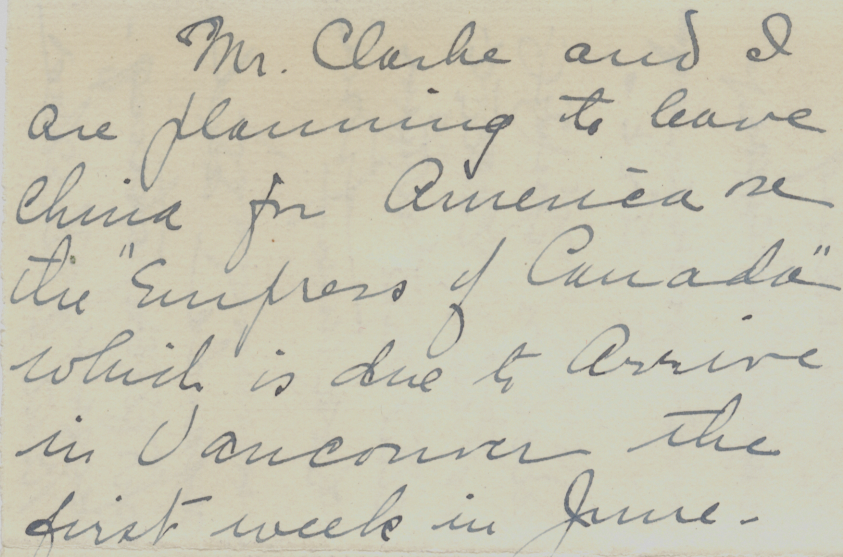 Mr. Clarke and I
are planning to leave
China for America on
the "Empress of Canada"
which is due to arrive
in Vancouver the
first week in June.